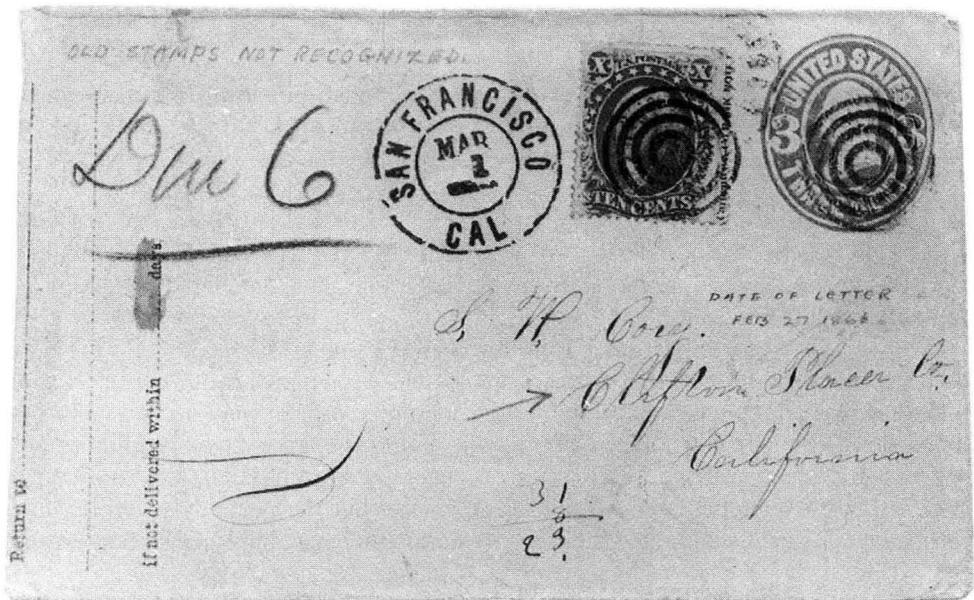 OLD STAMPS NOT RECOGNIZED.
Due 6
SAN FRANCISCO
MAR
1
CAL
U.S. POSTAGE
X X
TEN CENTS
UNITED STATES
3
DATE OF LETTER
FEB 27 186
S. W.
Placer Co.
California
3 1
6
2 3.
Return to
if not delivered within days